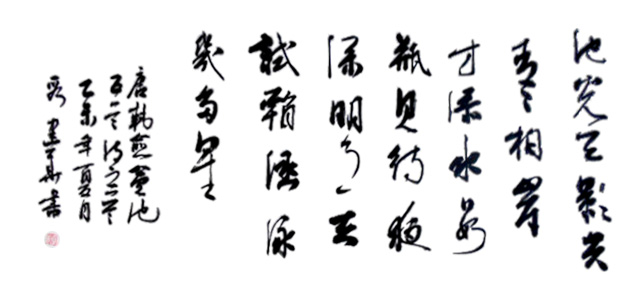 池光天影共
青々拍岸
才添水数
瓶且待夜
深明月去
試看涵泳
幾多星
唐韩愈盆池
五首诗之
乙未年夏月
建華書